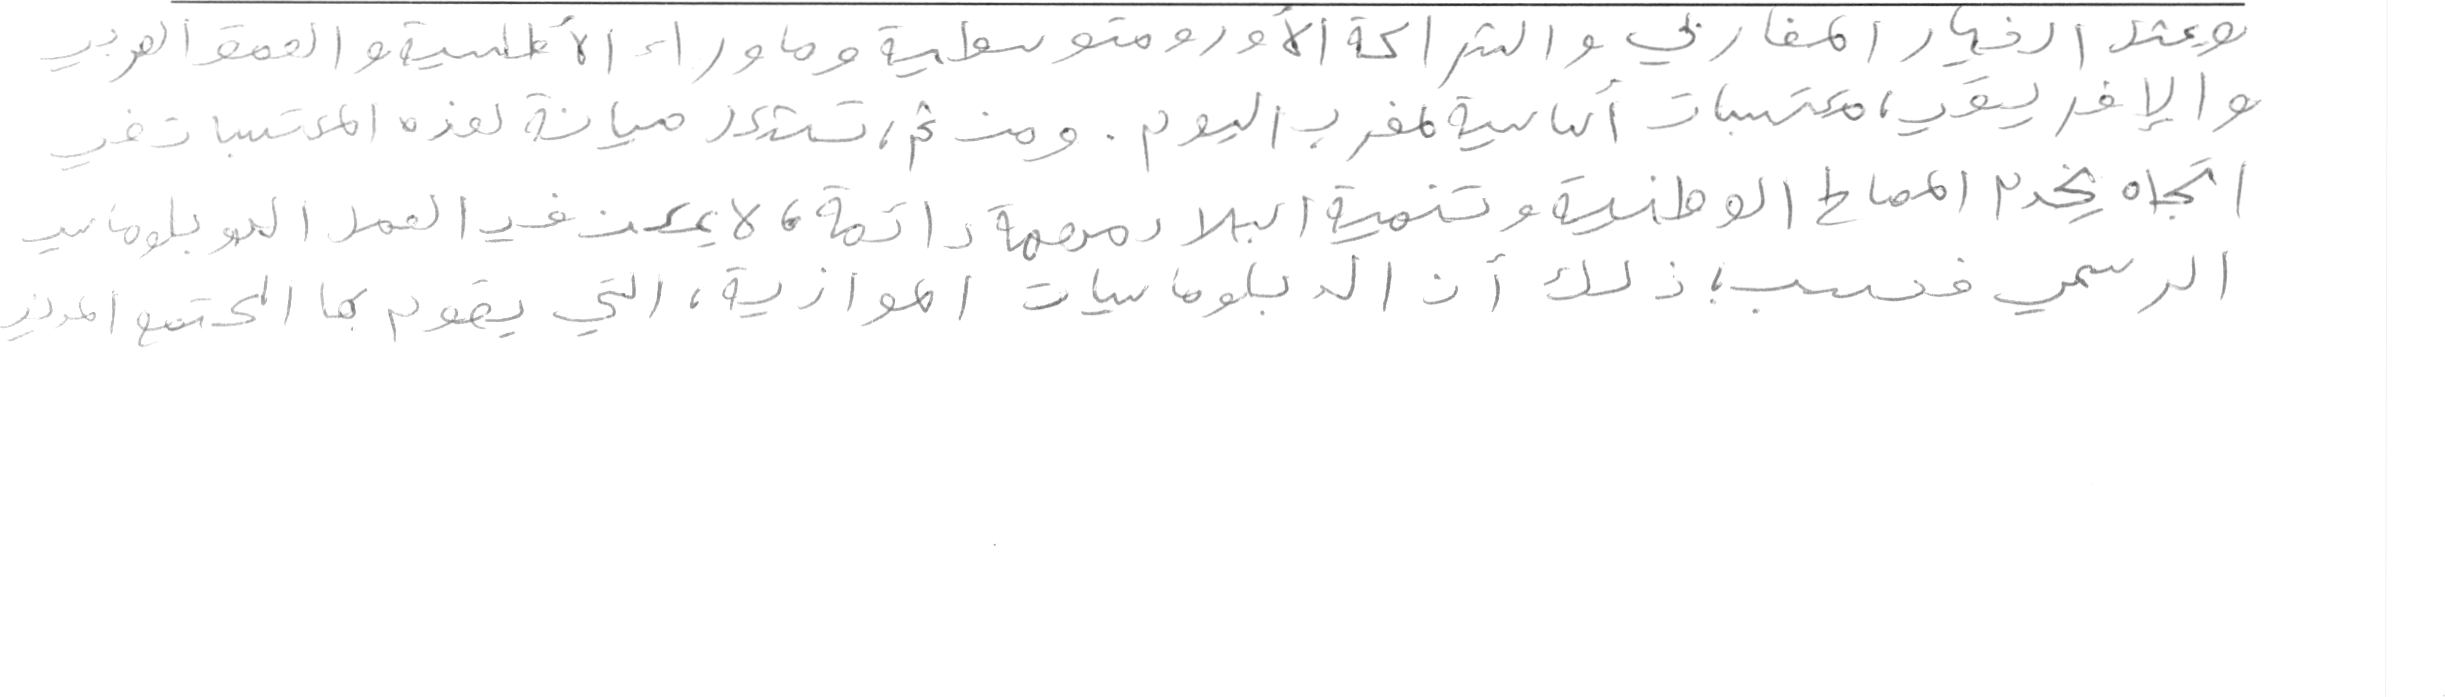 ويمثل الخيار المغاربي والشراكة الأورومتوسطية وما وراء الأطلسية والعمق العربي
والإفريقي، مكتسبات أساسية لمغرب اليوم. ومن ثم، تستمر صيانة لهذه المكتسبات في
اتجاه يخدم المصالح الوطنية وتنمية البلاد مهمة دائمة، لا يمكن في العمل الدبلوماسي
الرسمي فحسب؛ ذلك أن الدبلوماسيات الموازية، التي يقوم بها المجتمع المدني